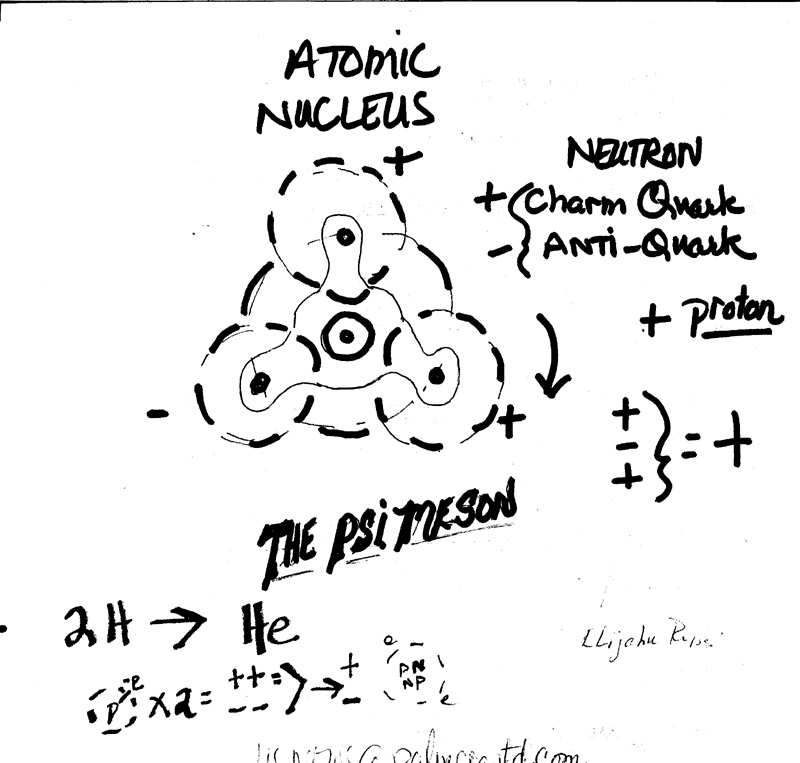 ATOMIC
NUCLEUS
+
NEUTRON
+ { Charm Quark
- { ANTI-Quark
+ proton
- +
+
-
+
} = +
THE PSI MESON
2H → He
P e x2 = ++ -- ⇒ + - e PN NP e